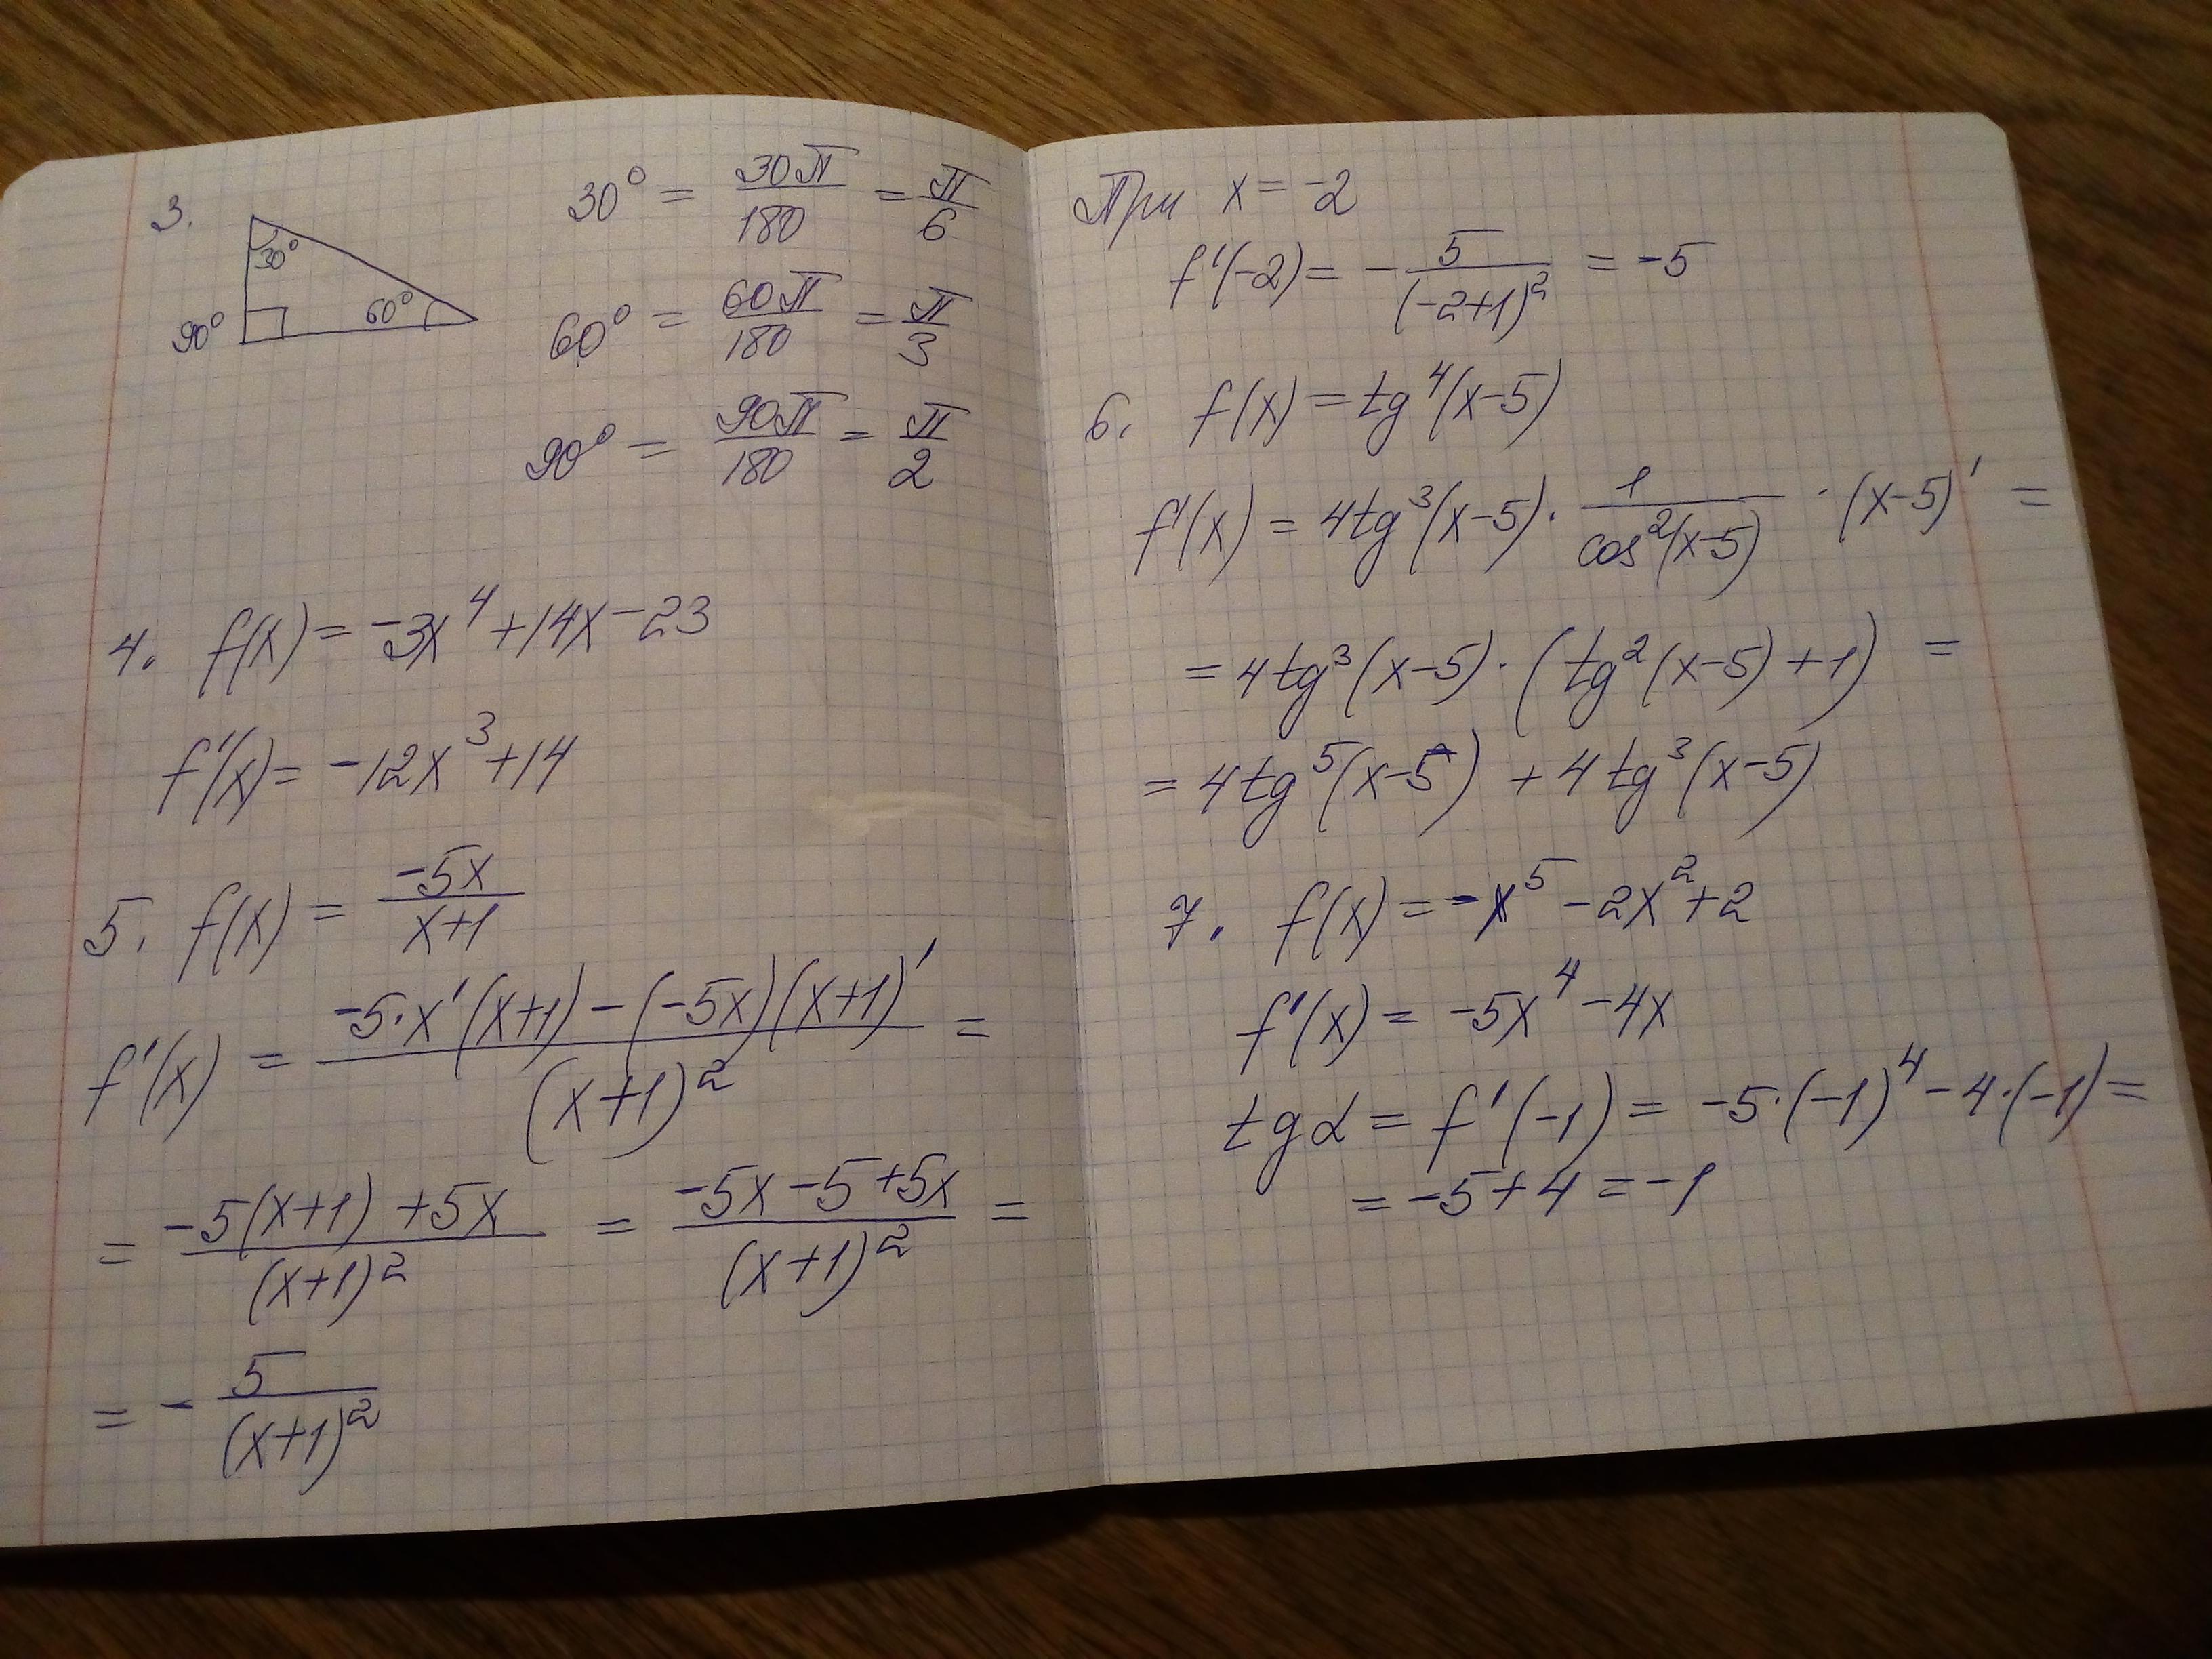 3.
30° 60° 90°
30° = 30π/180 = π/6
60° = 60π/180 = π/3
90° = 90π/180 = π/2
4. f(x) = -3x⁴ + 14x - 23
f'(x) = -12x³ + 14
5. f(x) = -5x/(x+1)
f'(x) = (-5·x'(x+1) - (-5x)(x+1)')/(x+1)² =
= (-5(x+1) + 5x)/(x+1)² = (-5x - 5 + 5x)/(x+1)² =
= - 5/(x+1)²
При x = -2
f'(-2) = - 5/(-2+1)² = -5
6. f(x) = tg⁴(x-5)
f'(x) = 4tg³(x-5) · 1/cos²(x-5) · (x-5)' =
= 4tg³(x-5) · (tg²(x-5) + 1) =
= 4tg⁵(x-5) + 4tg³(x-5)
7. f(x) = -x⁵ - 2x² + 2
f'(x) = -5x⁴ - 4x
tgα = f'(-1) = -5·(-1)⁴ - 4·(-1) =
= -5 + 4 = -1